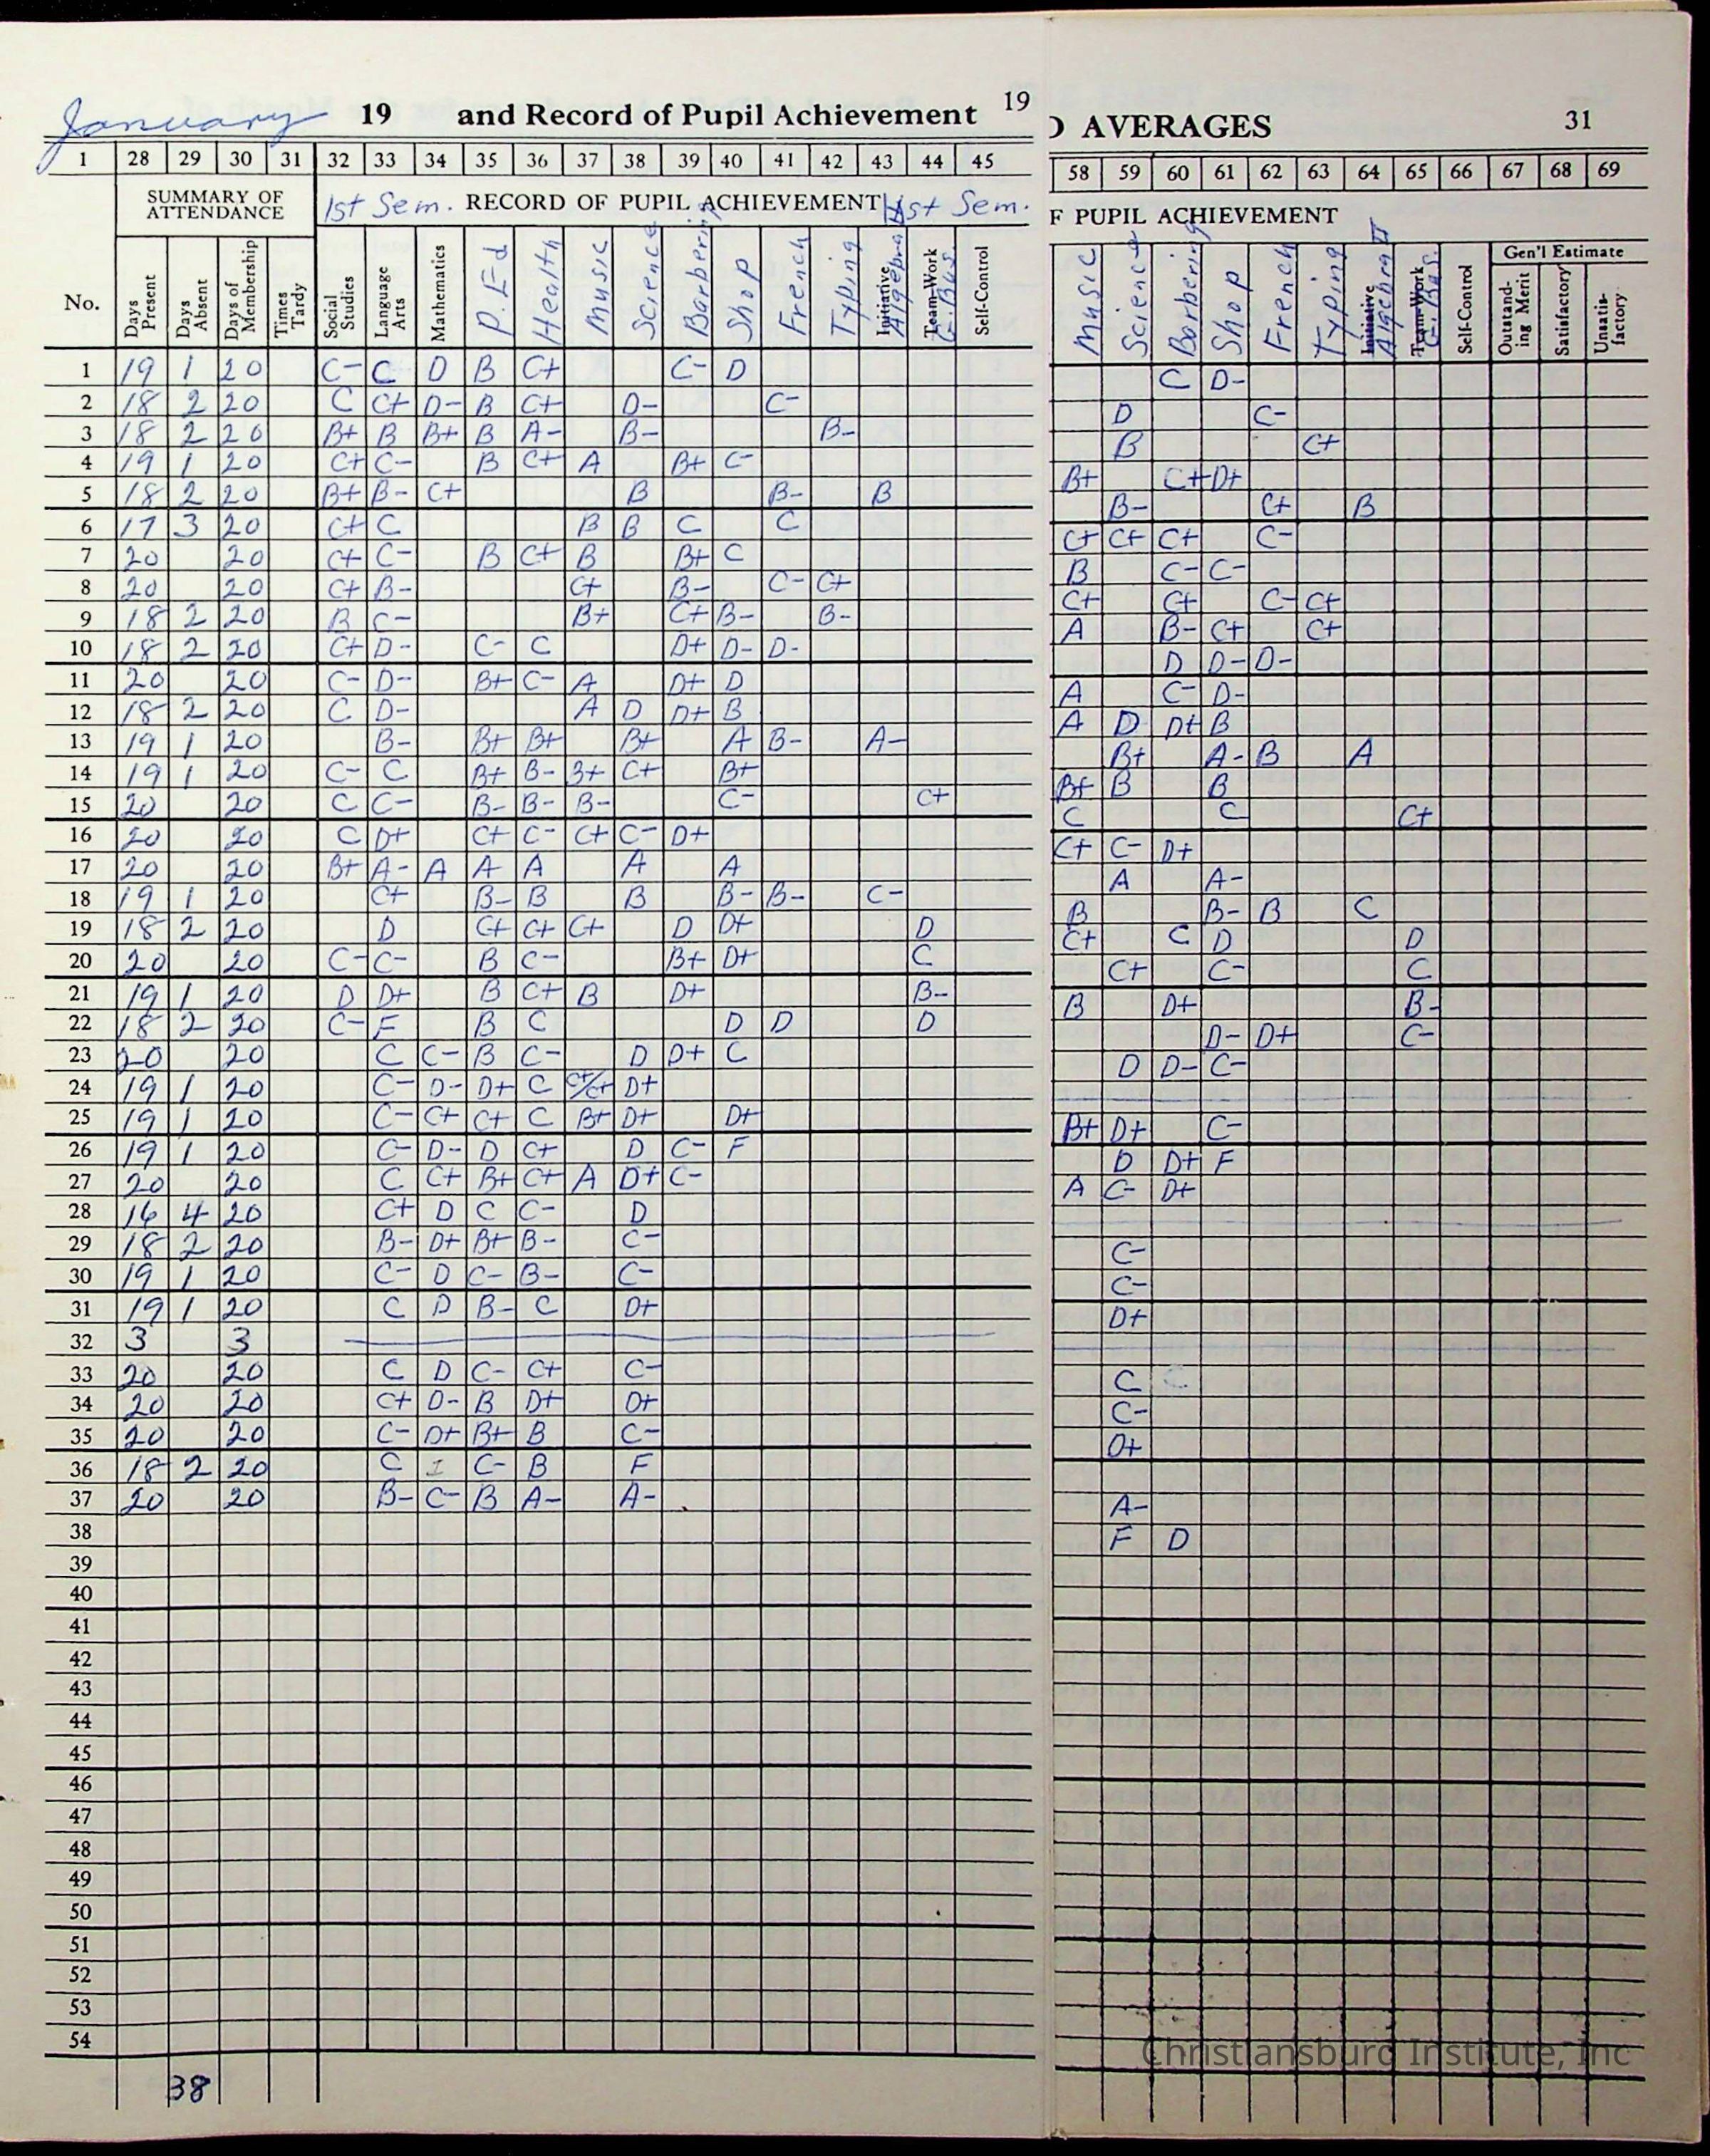 January 19 and Record of Pupil Achievement 19
1 28 29 30 31 32 33 34 35 36 37 38 39 40 41 42 43 44 45
SUMMARY OF ATTENDANCE 1st Sem. RECORD OF PUPIL ACHIEVEMENT 1st Sem.
No. Days Present Days Absent Days of Membership Times Tardy Social Studies Language Arts Mathematics P.Ed Health Music Science Barbering Shop French Typing Initiative Algebra Team-Work G. Bus. Self-Control
1 19 1 20 C- C D B C+ C- D
2 18 2 20 C C+ D- B C+ D- C-
3 18 2 20 B+ B B+ B A- B- B-
4 19 1 20 C+ C- B C+ A B+ C-
5 18 2 20 B+ B- C+ B B- B
6 17 3 20 C+ C B B C C
7 20 20 C+ C- B C+ B B+ C
8 20 20 C+ B- C+ B- C- C+
9 18 2 20 B C- B+ C+ B- B-
10 18 2 20 C+ D- C- C D+ D- D-
11 20 20 C- D- B+ C- A D+ D
12 18 2 20 C D- A D D+ B
13 19 1 20 B- B+ B+ B+ A B- A-
14 19 1 20 C- C B+ B- B+ C+ B+
15 20 20 C C- B- B- B- C- C+
16 20 20 C D+ C+ C- C+ C- D+
17 20 20 B+ A- A A A A A
18 19 1 20 C+ B- B B B- B- C-
19 18 2 20 D C+ C+ C+ D D+ D
20 20 20 C- C- B C- B+ D+ C
21 19 1 20 D D+ B C+ B D+ B-
22 18 2 20 C- F B C D D D
23 20 20 C C- B C- D D+ C
24 19 1 20 C- D- D+ C C+/C+ D+
25 19 1 20 C- C+ C+ C B+ D+ D+
26 19 1 20 C- D- D C+ D C- F
27 20 20 C C+ B+ C+ A D+ C-
28 16 4 20 C+ D C C- D
29 18 2 20 B- D+ B+ B- C-
30 19 1 20 C- D C- B- C-
31 19 1 20 C D B- C D+
32 3 3
33 20 20 C D C- C+ C-
34 20 20 C+ D- B D+ D+
35 20 20 C- D+ B+ B C-
36 18 2 20 C I C- B F
37 20 20 B- C- B A- A-
38
39
40
41
42
43
44
45
46
47
48
49
50
51
52
53
54
38
AVERAGES 31
58 59 60 61 62 63 64 65 66 67 68 69
F PUPIL ACHIEVEMENT
Gen'l Estimate
Music Science Barbering Shop French Typing Initiative Algebra II Team-Work G. Bus. Self-Control Outstanding Merit Satisfactory Unsatisfactory
C D-
D C-
B C+
B+ C+ D+
B- C+ B
C+ C+ C+ C-
B C- C-
C+ C+ C- C+
A B- C+ C+
D D- D-
A C- D-
A D D+ B
B+ A- B A
B+ B B
C C C+
C+ C- D+
A A-
B B- B C
C+ C D D
C+ C- C
B D+ B-
D- D+ C-
D D- C-
B+ D+ C-
D D+ F
A C- D+
C-
C-
D+
C
C-
D+
A-
F D
Christiansburg Institute, Inc